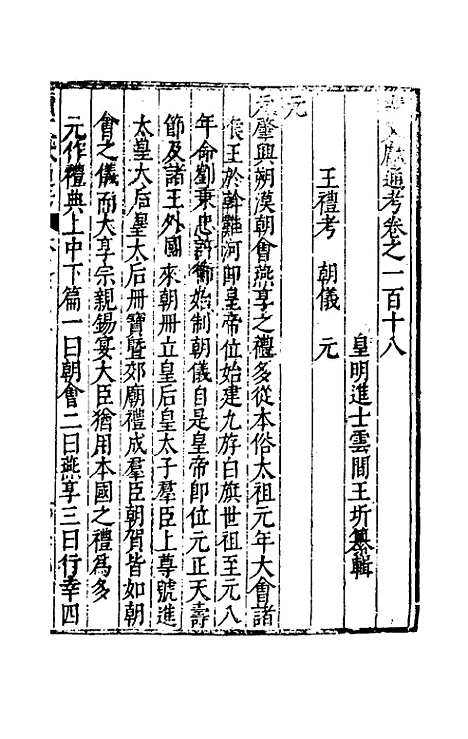 文獻通考卷之一百十八
皇明進士雲間王圻纂輯
王禮考 朝儀 元
元
元肇興朔漠朝會燕享之禮多從本俗太祖元年大會諸
侯王於斡難河卽皇帝位始建九斿白旗世祖至元八
年命劉秉忠許衡始制朝儀自是皇帝卽位元正天壽
節及諸王外國來朝冊立皇后皇太子羣臣上尊號進
太皇太后皇太后冊寶暨郊廟禮成羣臣朝賀皆如朝
會之儀而大享宗親錫宴大臣猶用本國之禮爲多
元作禮典上中下篇一曰朝會二曰燕享三曰行幸四